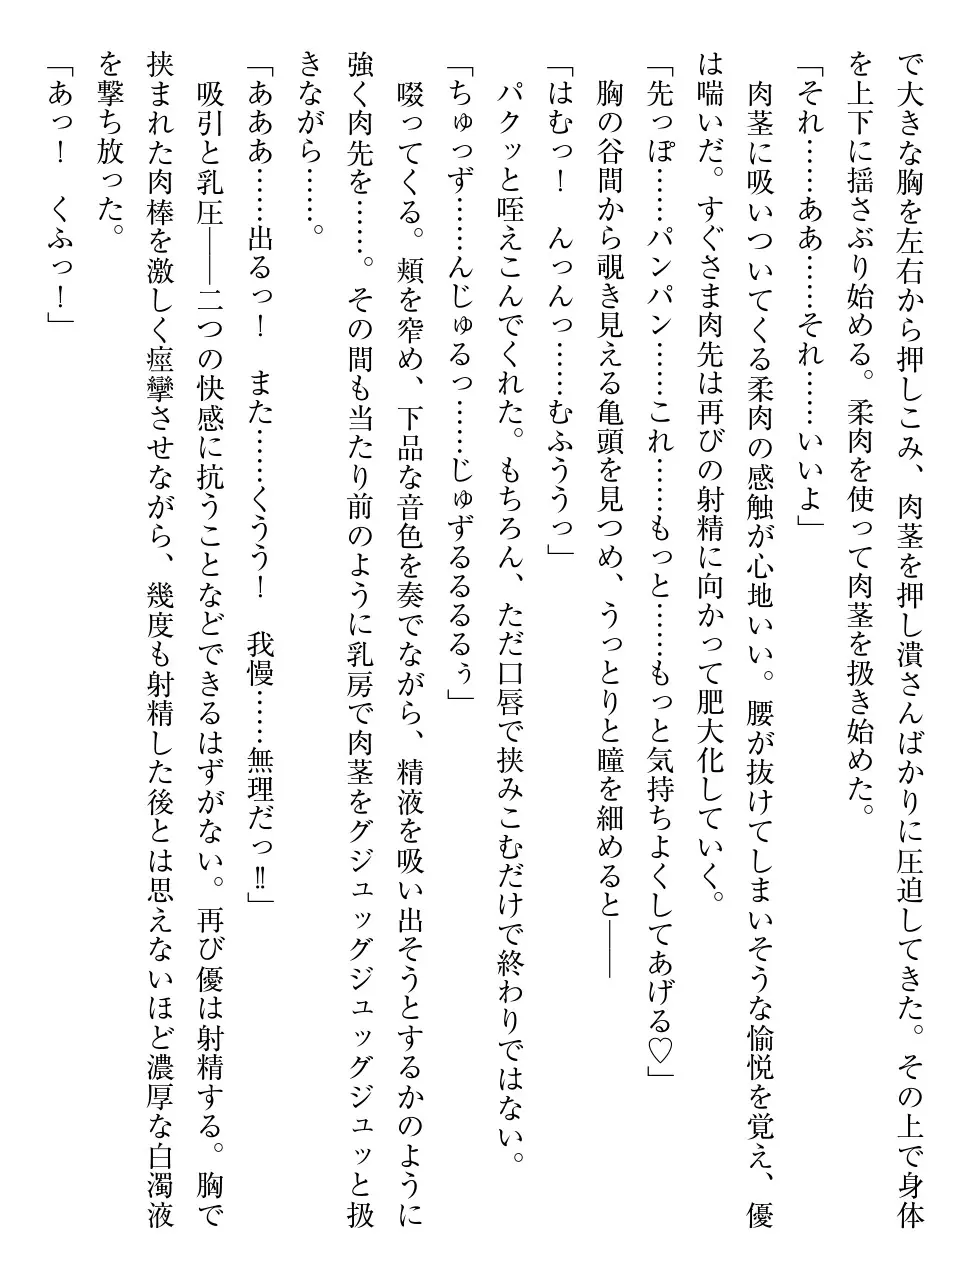 で大きな胸を左右から押しこみ、肉茎を押し潰さんばかりに圧迫してきた。その上で身体
を上下に揺さぶり始める。柔肉を使って肉茎を扱き始めた。
「それ……ああ……それ……いいよ」
肉茎に吸いついてくる柔肉の感触が心地いい。腰が抜けてしまいそうな愉悦を覚え、優
は喘いだ。すぐさま肉先は再びの射精に向かって肥大化していく。
「先っぽ……パンパン……これ……もっと……もっと気持ちよくしてあげる♡」
胸の谷間から覗き見える亀頭を見つめ、うっとりと瞳を細めると――
「はむっ！　んっんっ……むふううっ」
パクッと咥えこんでくれた。もちろん、ただ口唇で挟みこむだけで終わりではない。
「ちゅっず……んじゅるっ……じゅずるるるるぅ」
啜ってくる。頬を窄め、下品な音色を奏でながら、精液を吸い出そうとするかのように
強く肉先を……。その間も当たり前のように乳房で肉茎をグジュッグジュッグジュッと扱
きながら……。
「あああ……出るっ！　また……くうう！　我慢……無理だっ‼」
吸引と乳圧――二つの快感に抗うことなどできるはずがない。再び優は射精する。胸で
挟まれた肉棒を激しく痙攣させながら、幾度も射精した後とは思えないほど濃厚な白濁液
を撃ち放った。
「あっ！　くふっ！」